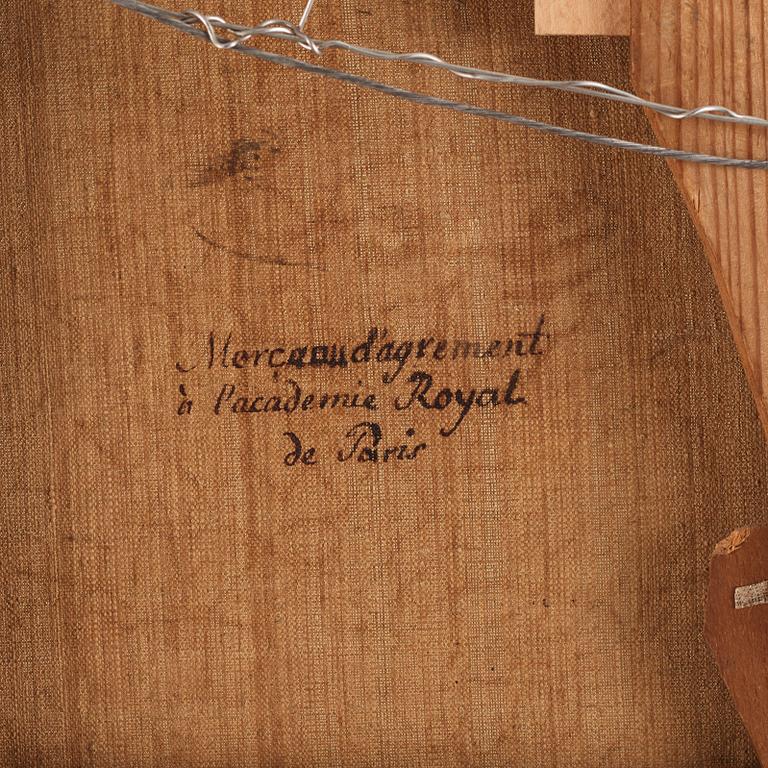 Morçeau d'agrement
à l'academie Royal
de Paris